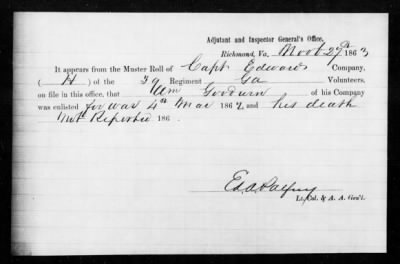 Adjutant and Inspector General's Office,
Richmond, Va. 27th 1863
It appears from the Muster Roll of Capt Edwards Company,
( H ) of the 39 Regiment Ga Volunteers,
on file in this office, that Wm of his Company
was enlisted for war 4th Mar 1862 and his death
Not Reported 186
Lt. Col. & A. A. Gen'l.